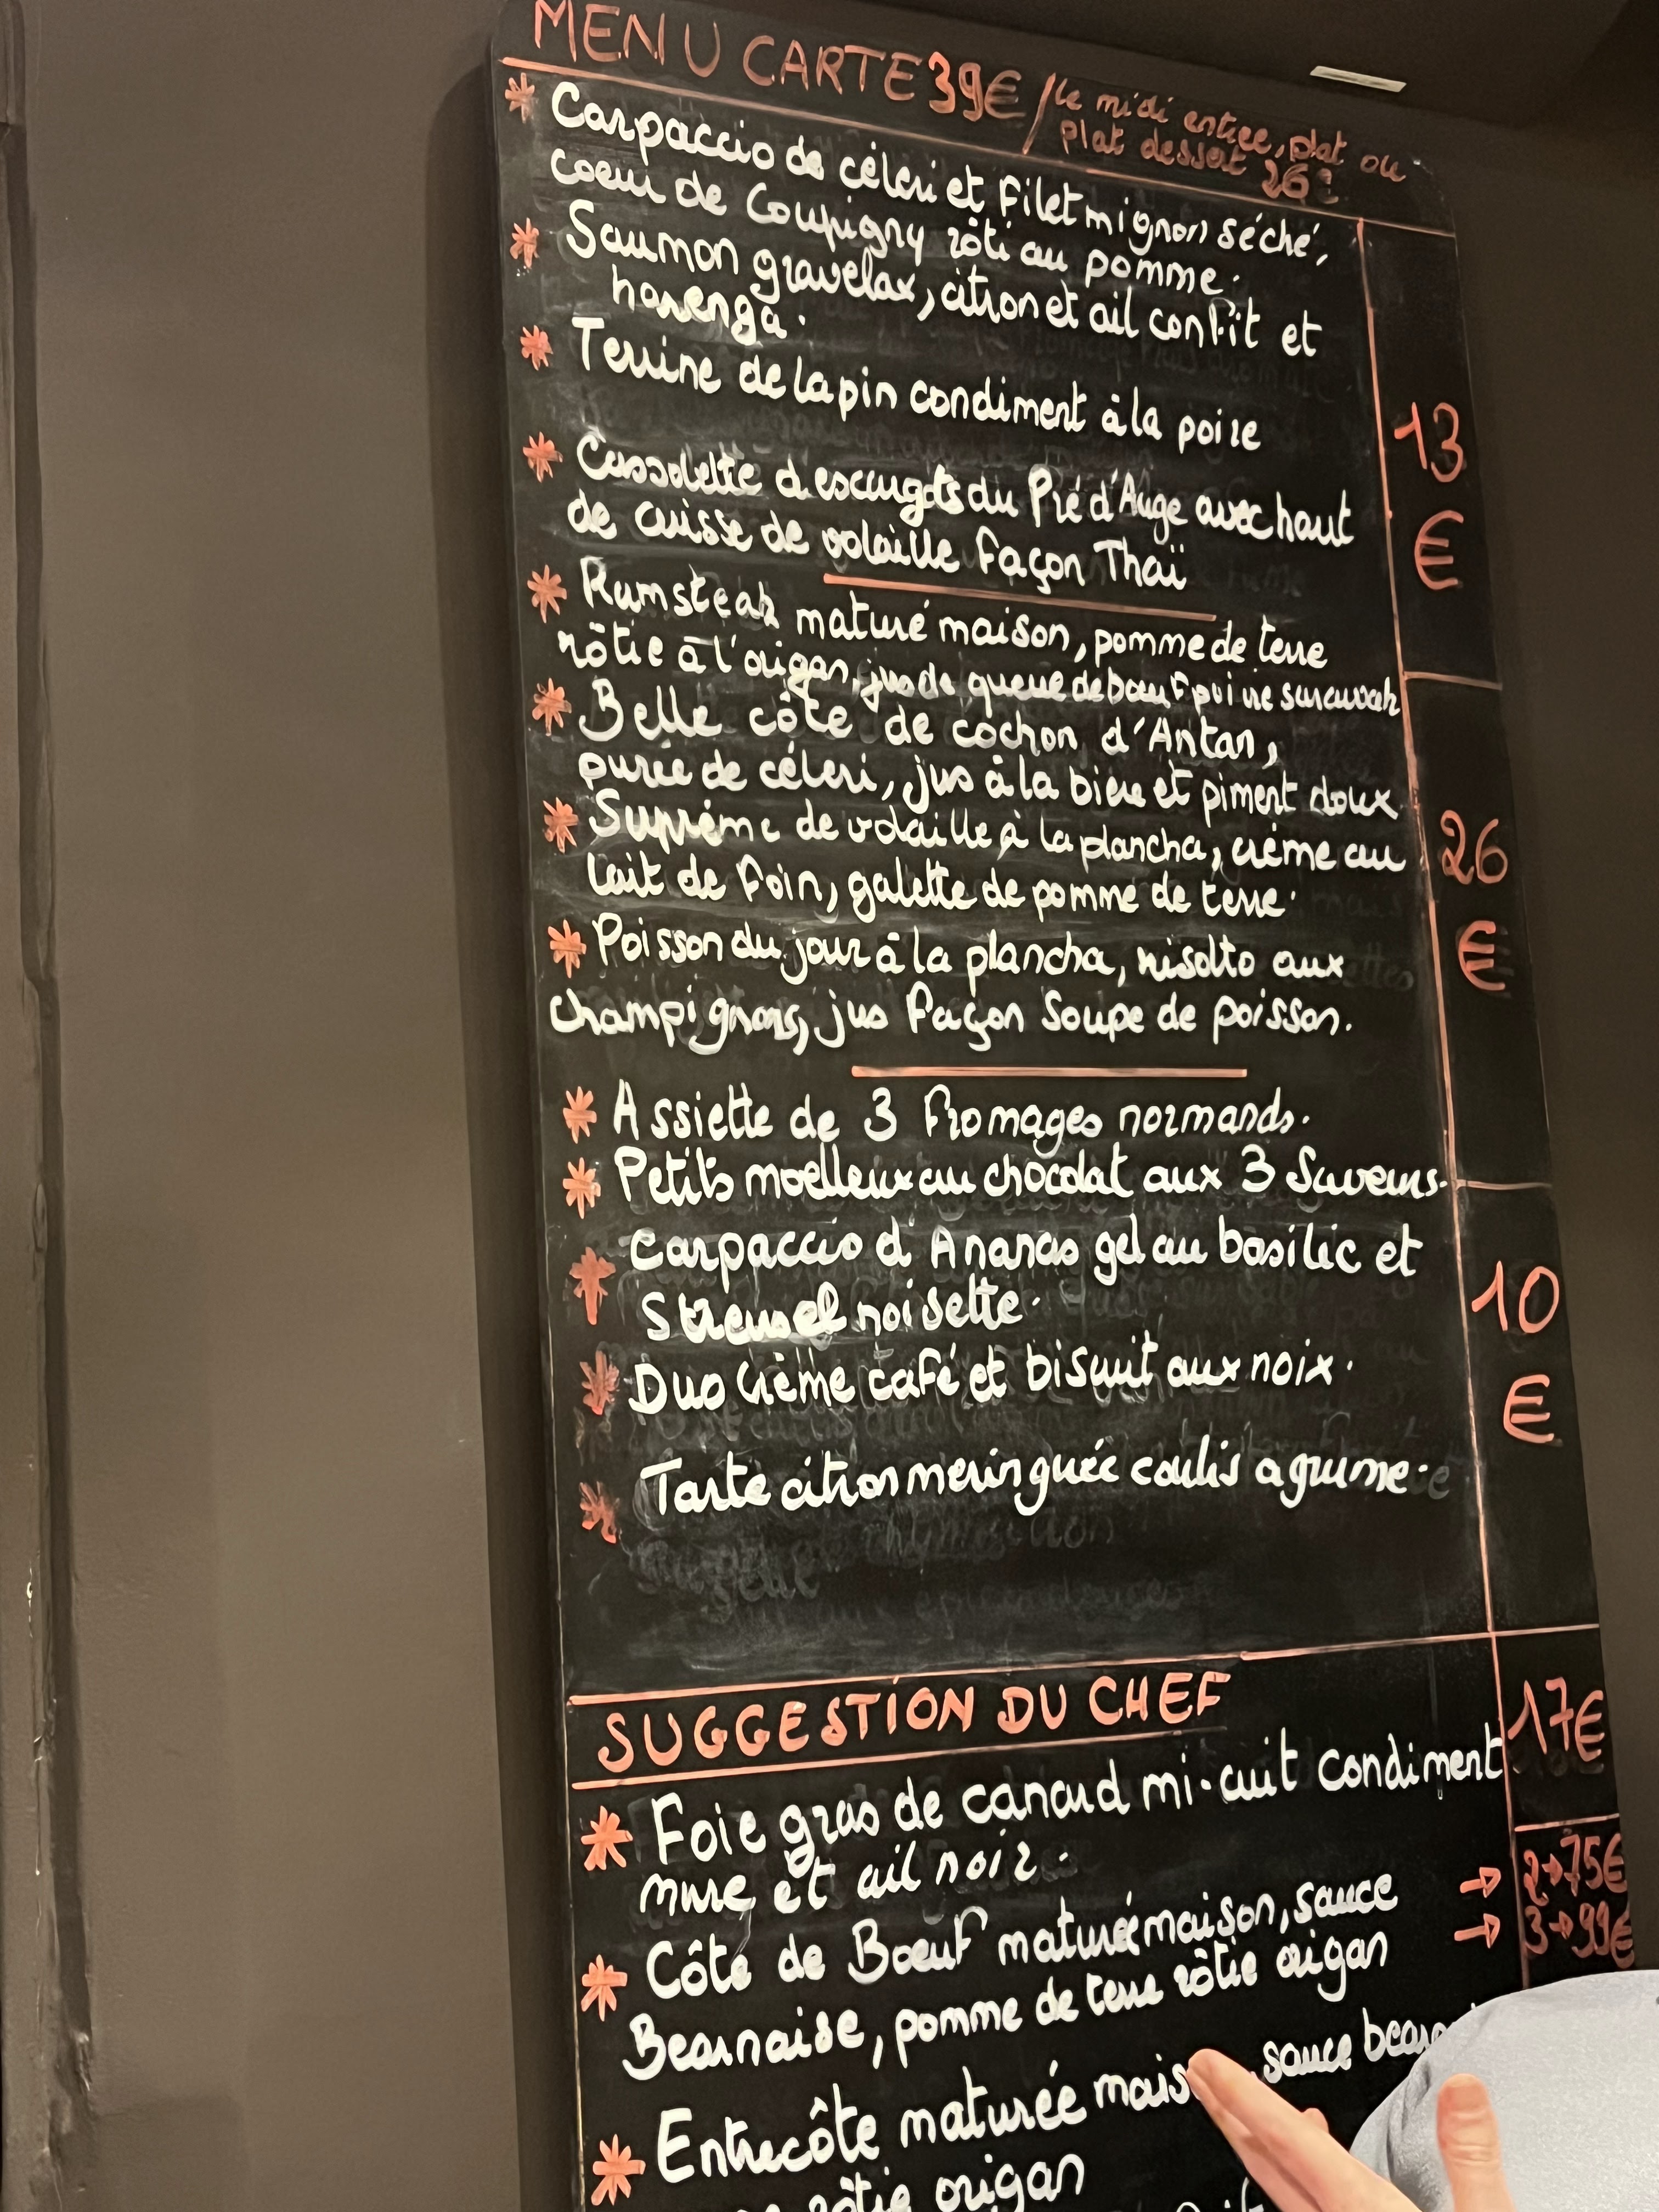 MENU CARTE 39€ / Le midi entree, plat ou
plat dessert 26€
* Carpaccio de céleri et filet mignon séché,
coeur de Coupigny rôti au pomme.
* Saumon gravelax, citron et ail confit et
harenga.
* Terrine de lapin condiment à la poire
* Cassolette d'escargots du Pré d'Auge avec haut
de cuisse de volaille façon Thaï
13
€
* Rumsteak maturé maison, pomme de terre
rôtie à l'origan, jus de queue de bœuf poivre sarawak
* Belle côte de cochon d'Antan,
purée de céleri, jus à la biere et piment doux
* Suprême de volaille à la plancha, crème au
lait de foin, galette de pomme de terre.
* Poisson du jour à la plancha, risotto aux
champignons, jus façon Soupe de poisson.
26
€
* Assiette de 3 fromages normands.
* Petits moelleux au chocolat aux 3 Saveurs.
* Carpaccio d'Ananas gel au basilic et
Streusel noisette.
* Duo Crème café et biscuit aux noix.
* Tarte citron meringuée coulis agrume.
10
€
SUGGESTION DU CHEF
* Foie gras de canard mi-cuit condiment
mure et ail noir.
17€
* Côte de Bœuf maturée maison, sauce
Bearnaise, pomme de terre rôtie origan
→ 2→75€
→ 3→99€
* Entrecôte maturée sauce
rôtie origan